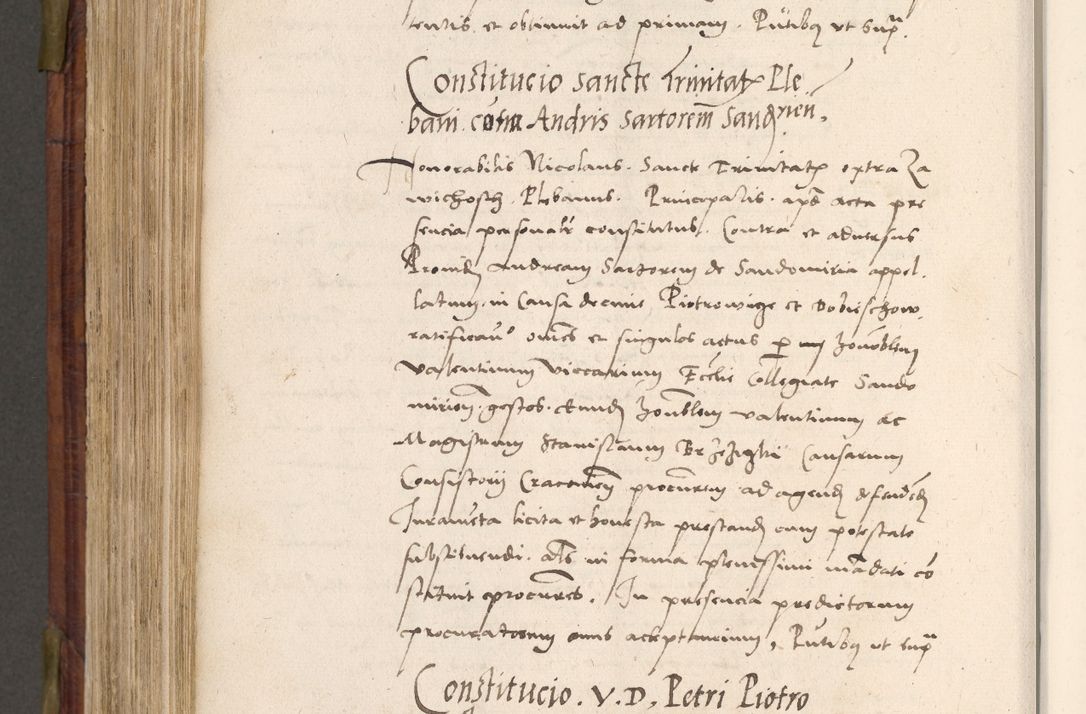 tentis et obtinuit ad primam. Pn̄tibꝫ vt supᵃ.
Constitucio Sancte Trinitatꝭ Ple
bani cōtra Andrꝭ Sartorem̄ Sandrien̄.
Honorabilis Nicolaus. Sancte Trinitatꝭ extra Za
wichosth. Plebanus. Principalis. apd̄ acta pre
sencia personalr̄ constitutus. Contra et aduersus
Prouid̄ Andream Sartorem de Sandomiria appel.
latum. in Causa decime Piotrowicze et Dobieschow.
ratificauᵗ om̄es et singulos actus per honōbilem
Valentinum Viccarium Eccl̄ie Collegiate Sando
mirien̄. gestos. Eund̄ honōblem Valentinum ac
Magistrum Stanislaum Brzezyski Causarum
Consistorij Cracouien̄ procur̄em ad agend̄ defendēd̄
Iuramēta licita et honesta prestand̄ cum potestate
substituendi. als̄ in forma plenissimi mādati cō
stituit procur̄es. In presencia predictorum
procuratorum onus acceptancium, Pn̄tibꝫ vt supᵃ
Constitucio. V. D. Petri Piotro